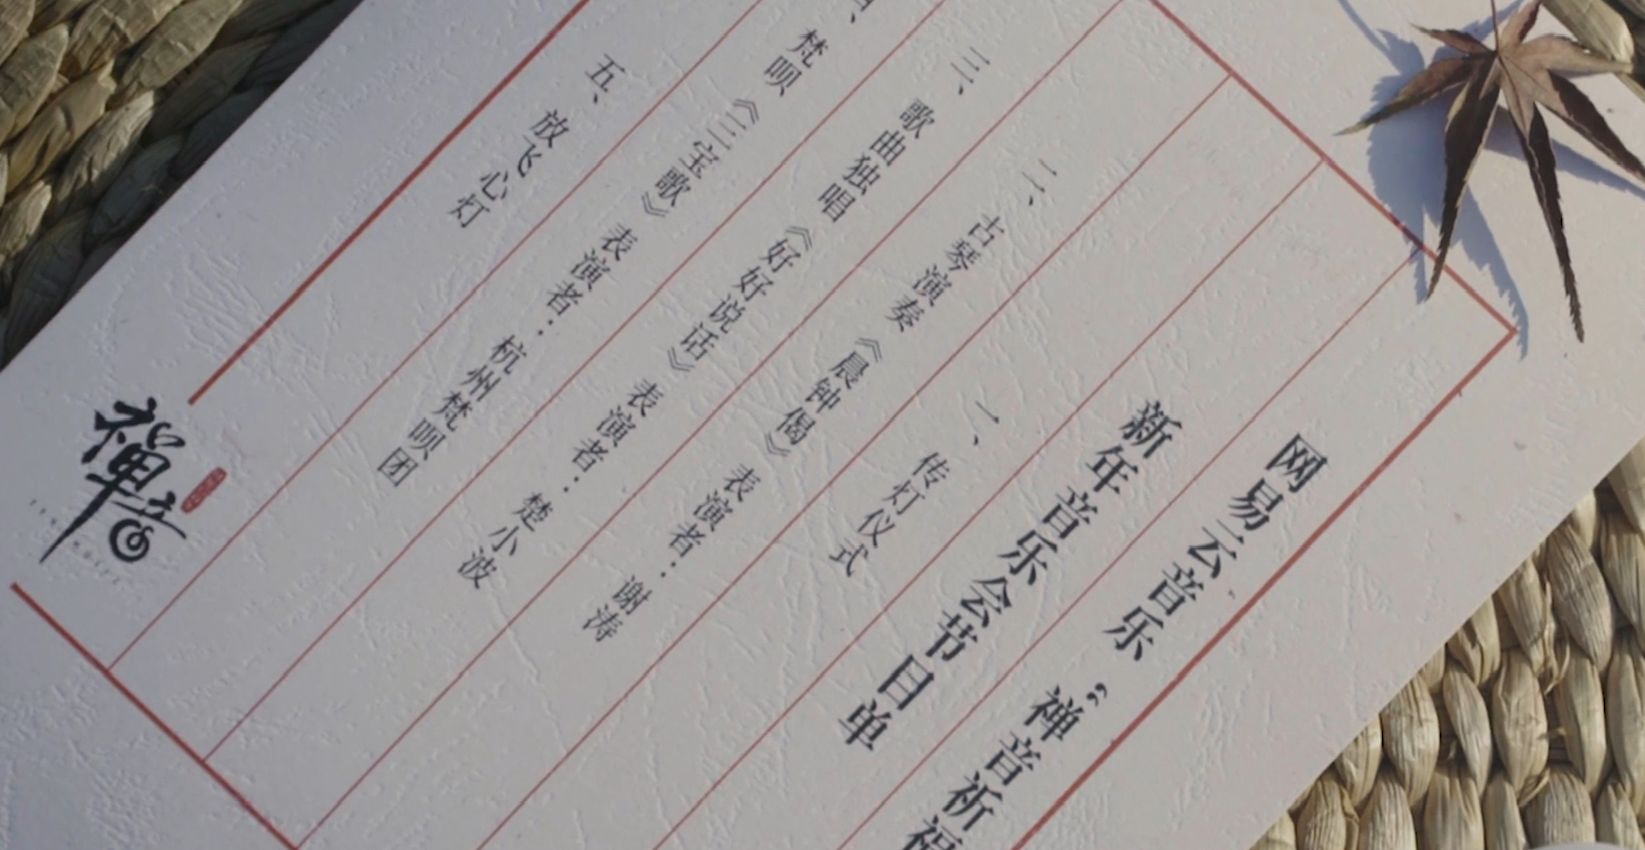 网易云音乐 “禅音祈福
新年音乐会节目单
一、 传灯仪式
二、 古琴演奏 《晨钟偈》 表演者： 谢涛
三、 歌曲独唱 《好好说话》 表演者： 楚小波
、 梵呗 《三宝歌》 表演者： 杭州梵呗团
五、 放飞心灯
禪音